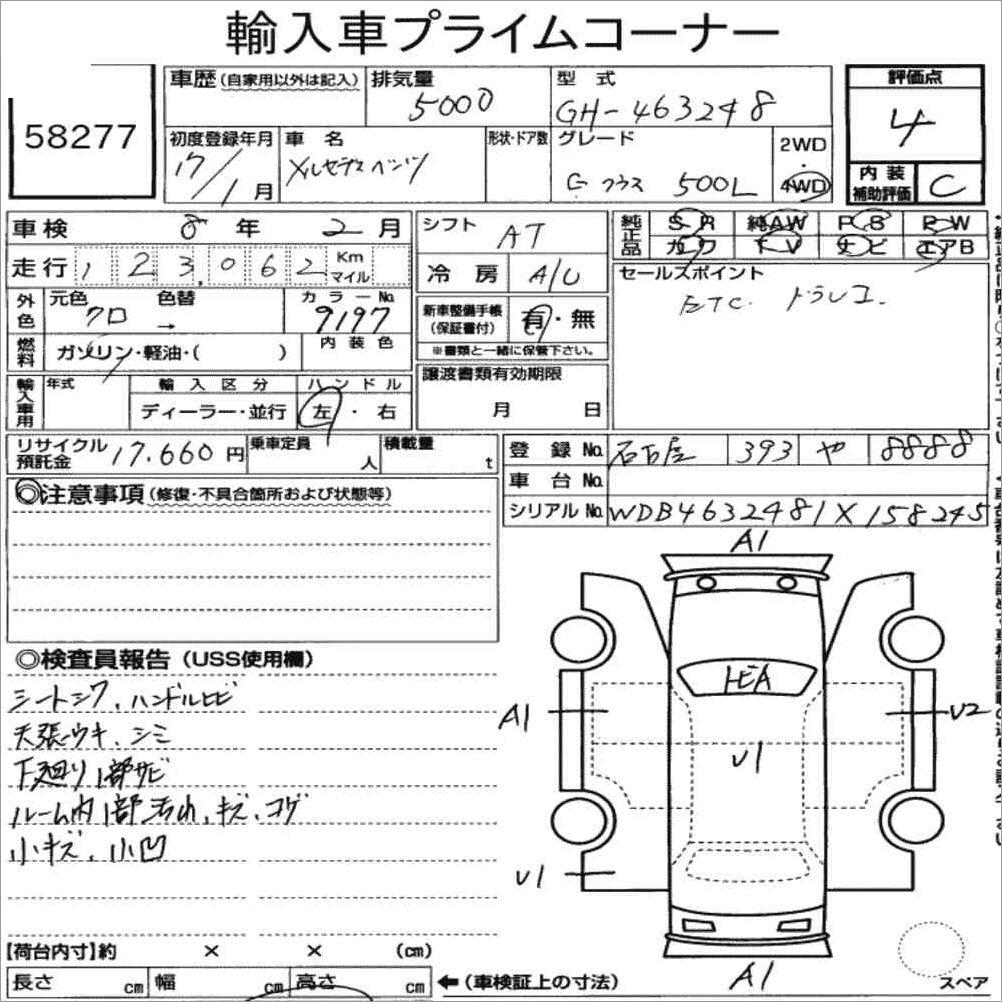 輸入車プライムコーナー
58277
車歴(自家用以外は記入)
排気量
5000
型式
GH-463248
評価点
4
初度登録年月
17/1月
車名
メルセデスベンツ
形状・ドア数
グレード
Gクラス 500L
2WD
・
4WD
内装
補助評価
C
車検 8年 2月
シフト AT
純正品
SR 純AW PS PW
カワ TV ナビ エアB
走行 123,062 Km
マイル
冷房 A/C
セールスポイント
ETC. ドラレコ.
外色
元色 色替 カラーNo
クロ → 9197
新車整備手帳
(保証書付)
有・無
※書類と一緒に保管下さい。
燃料
ガソリン・軽油・( )
内装色
輸入車用
年式
輸入区分
ハンドル
ディーラー・並行
左・右
譲渡書類有効期限
月 日
リサイクル
預託金
17.660円
乗車定員
人
積載量
t
登録No. 名古屋 393 や 8888
車台No.
シリアルNo. WDB4632481X158245
◎注意事項(修復・不具合箇所および状態等)
◎検査員報告(USS使用欄)
シートシワ、ハンドルヒビ
天張ウキ、シミ
下廻り1部サビ
ルーム内1部汚れ、キズ、コゲ
小キズ、小凹
A1
トビA
A1
U2
U1
U1
A1
スペア
【荷台内寸】約 × × (cm)
長さ cm 幅 cm 高さ cm
←(車検証上の寸法)